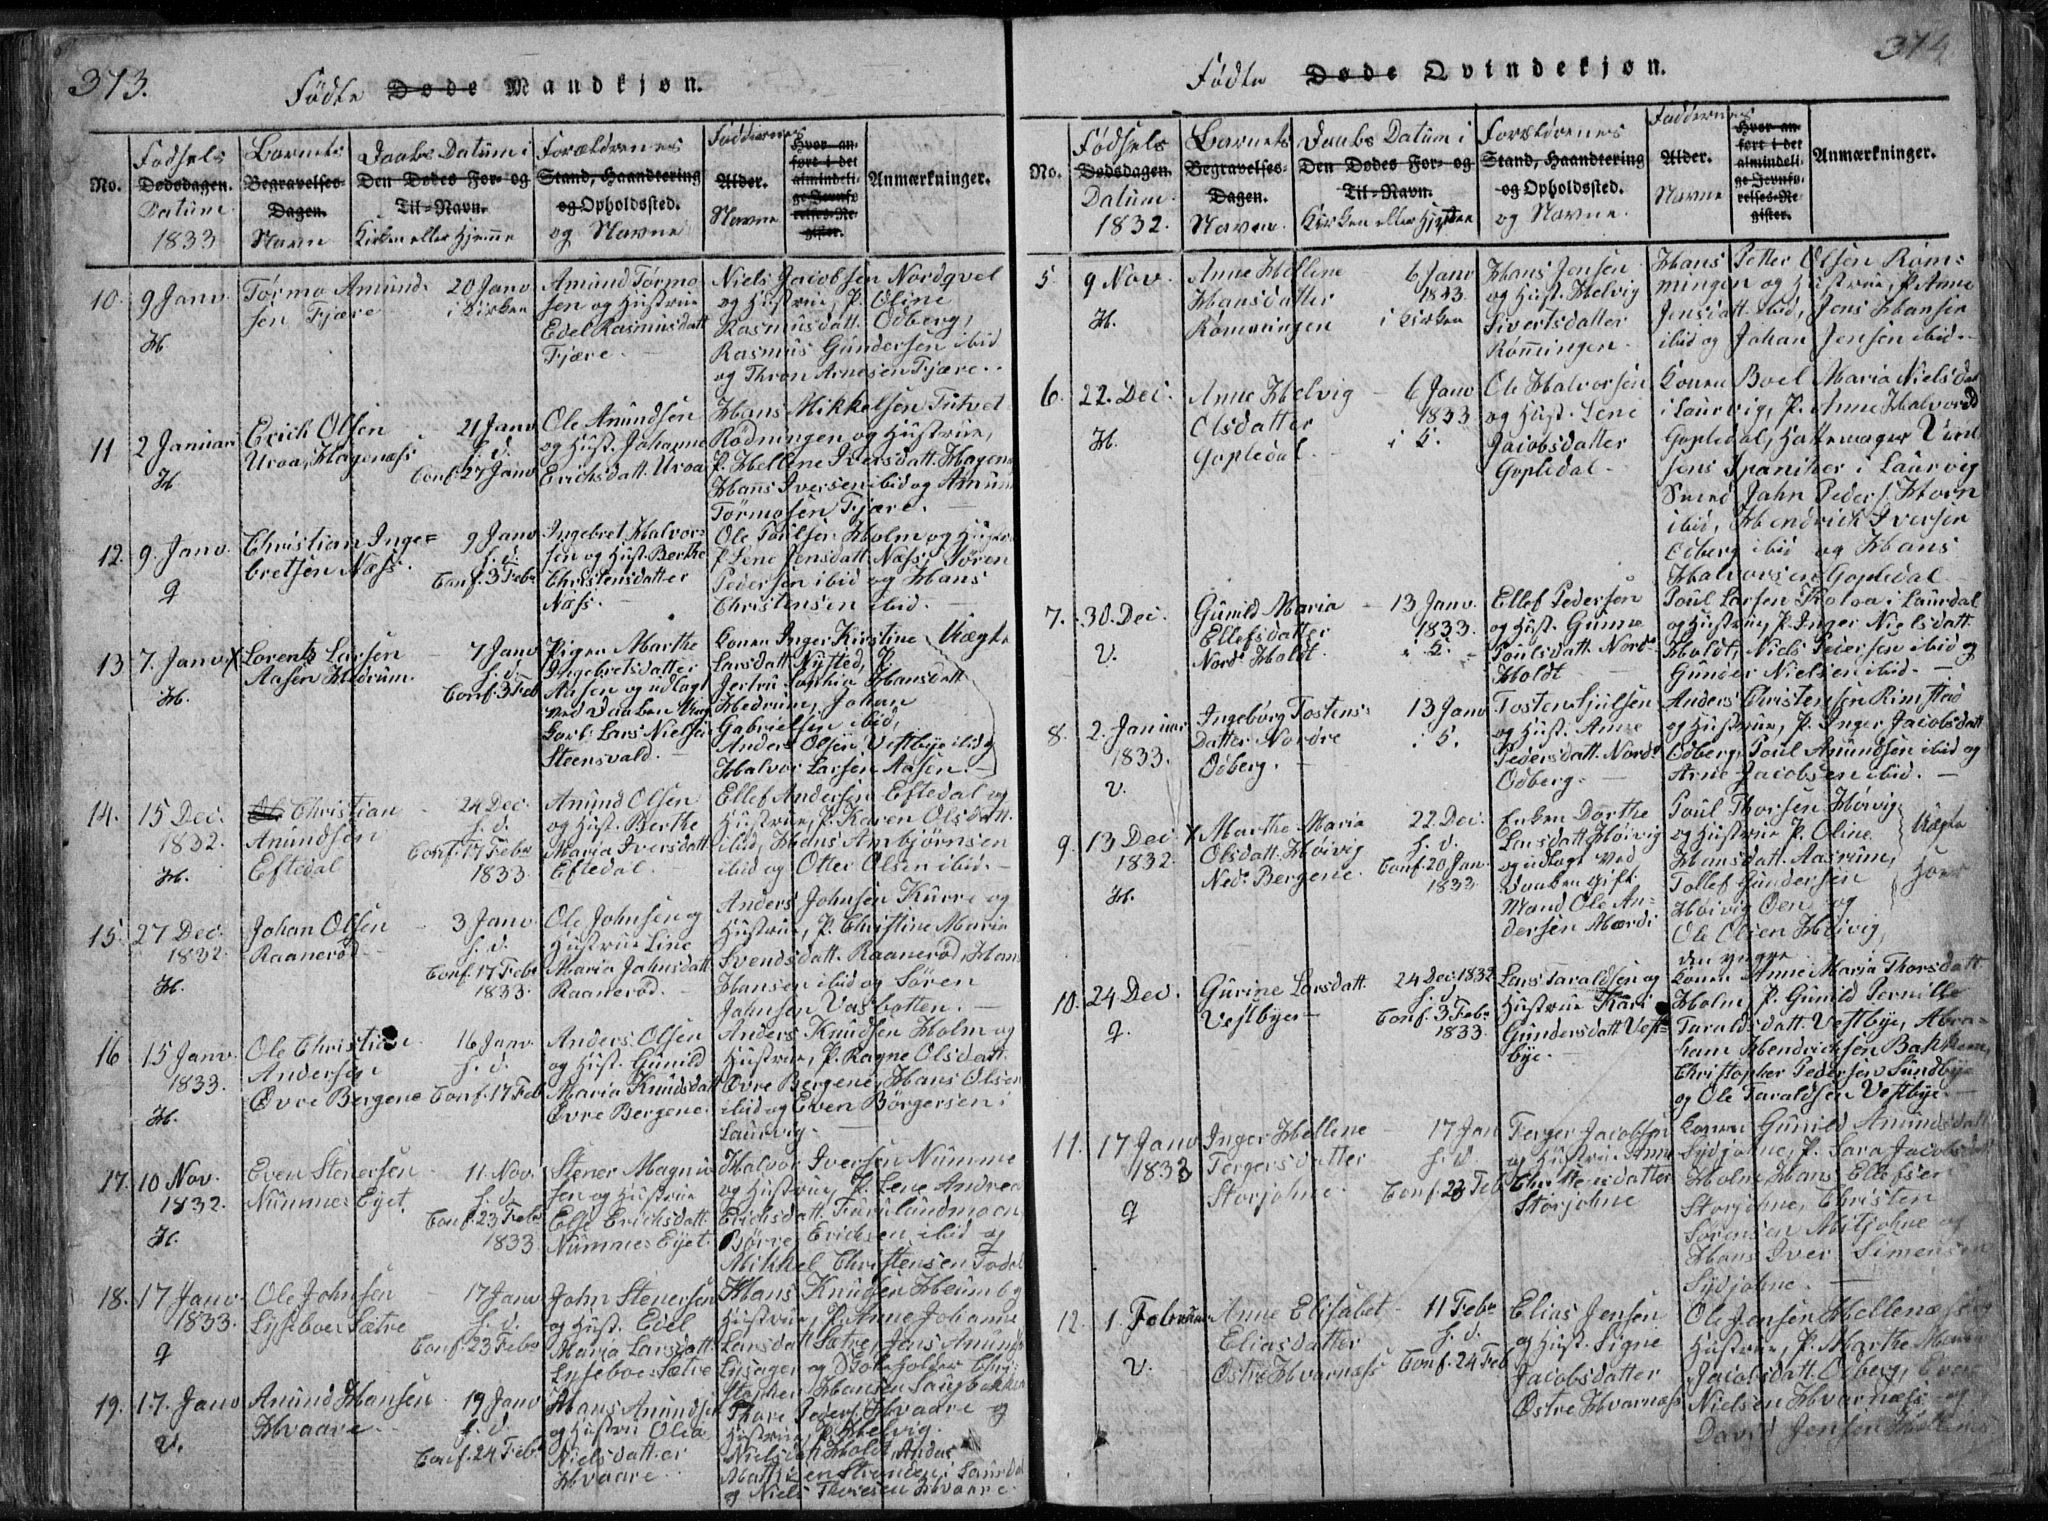 373.
Fødte Døde Mandkjøn.
No.
Fødsels
Dødsdagen.
Datum
1833
Barnets
Begravelses-
Dagen.
Navn
Daabs Datum i
Den Dødes For- og
Til-Navn.
Kirken eller Hjemme
Forældrenes
Stand, Haandtering
og Opholdssted.
og Navne
Faddernes
Alder.
Navne
Hvor an-
ført i det
almindeli-
ge Jevnfø-
relses-Re-
gister.
Anmærkninger.
10. 9 Janv.
H
Tørmo Amund-
sen Fjære
20 Janv
i Kirken
Amund Tørmo
sen og Hustrue
Edel Rasmusdatt
Fjære.
Niels Jacobsen Nordqvel
og Hustrue, P. Oline
Rasmusdatt. Odberg,
Rasmus Gundersen ibid
og Thron Arnesen Fjære.
11 2 Januari
H
Erich Olsen
Uroa, Hagenæss
21 Janv
h. d.
Conf. 27 Janv
Ole Amundsen
og Hust. Johanne
Erichsdatt. Uroa
Hans Mikkelsen Tutvet
Rødningen og Hustrue,
P. Hellene Iversdatt. Hagenæ
Hans Iversen ibid og Amun
Tørmosen Fjære.
12. 9. Janv.
q
Christian Inge=
bretsen Næss.
9 Janv
h. d.
Conf. 3 Febr
Ingebret Halvor-
sen og Hust. Berthe
Christensdatter
Næss.
Ole Poulsen Holm og Hustrue
P. Lene Jensdatt. Næss, Søren
Pedersen ibid og Hans
Christensen ibid.
13 7. Janv. X
H.
Lorentz Larsen
Aasen Hedrum.
7 Janv
h. d.
Conf. 3 Feb
Pigen Marthe
Ingebretsdatter
Aasen og udlagt
ved Daaben Ung
Karl Lars Nielsen
Steensvald.
Konen Inger Kirstine
Larsdatt. Nysted, P.
Jertru Sophia Hansdatt
Hedrum, Johan
Gabrielsen ibid,
Anders Olsen Vestbye ibid og
Halvor Larsen Aasen.
Uægte
14. 15 Dec.
1832.
H.
Ole Christian
Amundsen
Eftedal
24 Dec.
h. d.
Conf. 17 Febr
1833
Amund Olsen
og Hust. Berthe
Maria Iversdatt
Eftedal.
Ellef Andersen Eftedal og
Hustrue, P. Karen Olsdatt.
ibid, Hans Ambjørnsen
ibid og Otter Olsen ibid.
15. 27 Dec.
1832
H.
Johan Olsen
Raanerød
3 Janv.
h. d.
Conf. 17 Febr
1833.
Ole Johnsen og
Hustrue Line
Maria Johnsdatt
Raanerød.
Anders Johnsen Kurre og
Hustrue, P. Christine Maria
Svendsdatt. Raanerød, Hans
Hansen ibid og Søren
Johnsen Vasbotten.
16 15 Janv.
1833.
H.
Ole Christian
Andersen
Øvre Bergene
16 Janv.
h. d.
Conf. 17 Feb
Anders Olsen
og Hust. Gunild
Maria Knudsdatt
Øvre Bergene.
Anders Knudsen Holm og
Hustrue, P. Ragne Olsdatt.
Øvre Bergene, Hans Olsen
ibid og Even Børgersen i
Laurvig.
17. 10 Nov.
1832.
H.
Even Stenersen
Nummes Eyet.
11 Nov.
h. d.
Conf. 23 Febr
1833
Stener Magnu
sen og Hustrue
Else Erichsdatt.
Nummes Eyet.
Halvor Iversen Numme
og Hustrue, P. Lene Andrea
Erichsdatt. Furulundmoen
Børre Ericksen ibid og
Mikkel Christensen Todal
18. 17 Janv
1833.
q
Ole Johnsen
Lyseboe Sætre
17 Janv
h. d.
Conf. 23 Febr
John Stenersen
og Hust. Edel
Maria Larsdatt.
Lyseboe Sætre
Hans Knudsen Heum og
Hustrue, P. Anne Johanne
Larsdatt. Sætre, Jens Amunds
Lysager og Skoleholder Chri-
stopher Hansen Saugbakken
19. 17. Janv
V.
Amund Hansen
Hvaare
19 Janv
h. d.
Conf. 24 Febr
Hans Amundsen
og Hustru Olia
Nielsdatter
Hvaare
Thore Peders. Hvaare og
Hustrue, P. Helvig.
Nielsdatt. Holdt, Anders
Mathisen Stranden i Laurdal
og Niels Thoresen Hvaare.
374
Fødte Døde Qvindekjøn.
No.
Fødsels
Dødsdagen.
Datum
1832.
Barnets
Begravelses-
Dagen.
Navn.
Daabs Datum i
Den Dødes For- og
Til-Navn.
Kirken eller Hjemme
Forældrenes
Stand, Haandtering
og Opholdssted.
og Navne.
Faddernes
Alder.
Navne
Hvor an-
ført i det
almindeli-
ge Jevnfø-
relses-Re-
gister.
Anmærkninger.
5 9 Nov.
H.
Anne Hellene
Hansdatter
Rømmingen
6 Janv
1833.
i Kirken
Hans Jensen
og Hust. Helvig
Sivertsdatter
Rømmingen.
Hans Petter Olsen Røm-
mingen og Hustrue, P. Anne
Jensdatt. ibid, Jens Hansen
ibid og Johan Jensen ibid.
6. 22. Dec.
H.
Anne Helvig
Olsdatter
Gopledal
6 Janv
1833
i K.
Ole Halvorsen
og Hust. Lene
Jacobsdatter
Gopledal
Konen Boel Maria Nielsdat
i Laurvig, P. Anne Halvorsd
Gopledal, Hattemager
i Laurvig
Smed Jahn Peders. Horn
ibid, Hendrick Iversen
Odberg ibid og Hans
Halvorsen Gopledal
7. 30. Dec.
V.
Gunild Maria
Ellefsdatter
Nord. Holdt.
13 Janv.
1833.
i K.
Ellef Pedersen
og Hust. Gunne
Poulsdatt. Nord.
Holdt.
Poul Larsen Skoloa i Laurdal
og Hustrue, P. Inger Nielsdatt.
Holdt, Niels Pedersen ibid og
Gunder Nielsen ibid.
8. 2. Januar
1833.
V.
Ingeborg Tostens-
datter Nordre
Odberg.
13 Janv
i K.
Tosten Hjulsen
og Hust. Anne
Pedersdatt. Nord.
Odberg.
Anders Christensen Rimstad
og Hustrue, P. Inger Jacobsdatt
Odberg, Poul Amundsen ibid og
Arne Jacobsen ibid.
9. 13 Dec. X
1832
H.
Marthe Maria
Olsdatt. Høivig
Ned. Bergene.
22 Dec.
h. d.
Conf. 20 Jan.
1833
Enken Dorthe
Larsdatt. Høivig
og udlagt ved
Daaben gift
Mand Ole An-
dersen Mærdi
Poul Thorsen Høivig
og Hustrue P. Oline
Hansdatt. Aasrum,
Tollef Gundersen
Høivig Øen og
Ole Olsen Høivig,
den yngre
Uægte
Hoer
10. 24 Dec.
q.
Gurine Larsdatt.
Vestbye
24 Dec. 1832
h. d.
Conf. 3 Febr
1833.
Lars Taraldsen og
Hustrue Kari
Gundersdatt Vest=
bye.
Konen Anne Maria Thorsdatt
Holm, P. Gunild Pernille
Taraldsdatt. Vestbye, Abra-
ham Hendrichsen Bakken,
Christopher Pedersen Sundbye
og Ole Taraldsen Vestbye.
11. 17 Janv
1833
q
Inger Hellene
Tergersdatter
Storjohne.
17 Jan
h. d.
Conf. 23 Feb
Terger Jacobsen
og Hustrue Anne
Christensdatter
Storjohne
Konen Gunild Amundsdatt.
Sydjohne, P. Sara Jacobsdatt
Holm, Hans Ellefsen
Storjohne, Christen
Sørensen Mitjohne og
Hans Iver Simensen
Sydjohne.
12. 1. Februar
V.
Anne Elisabet
Eliasdatter
Østre Hvarnæss
11 Febr
h. d.
Conf. 24 Feb
Elias Jensen
og Hust. Signe
Jacobsdatter
Østre Hvarnæss
Ole Jensen Hellenæs og
Hustrue, P. Marthe Maria
Jacobsdatt. Odberg, Even
Nielsen Hvarnæss og
David Jensen Hellenæs